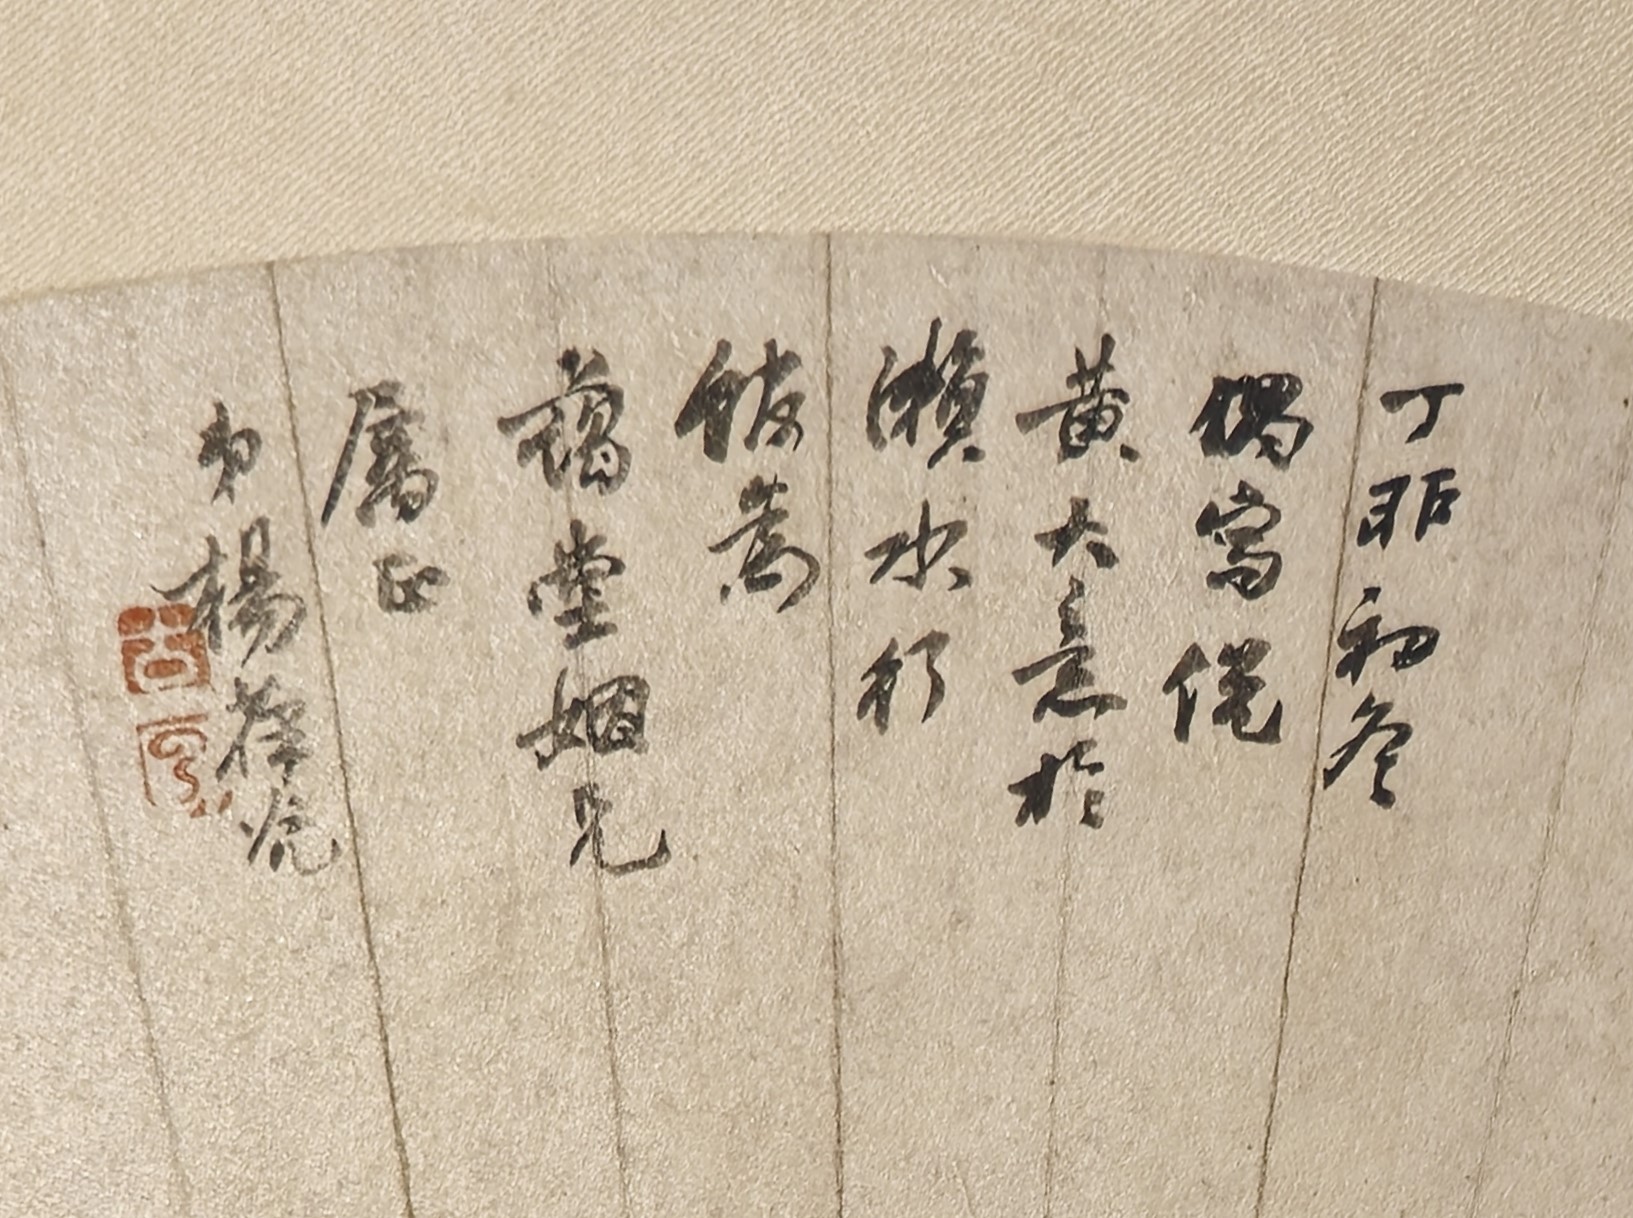 丁卯初冬
偶寫倪
黃大意於
瀨水行
館為
藹堂姻兄
屬正
弟楊